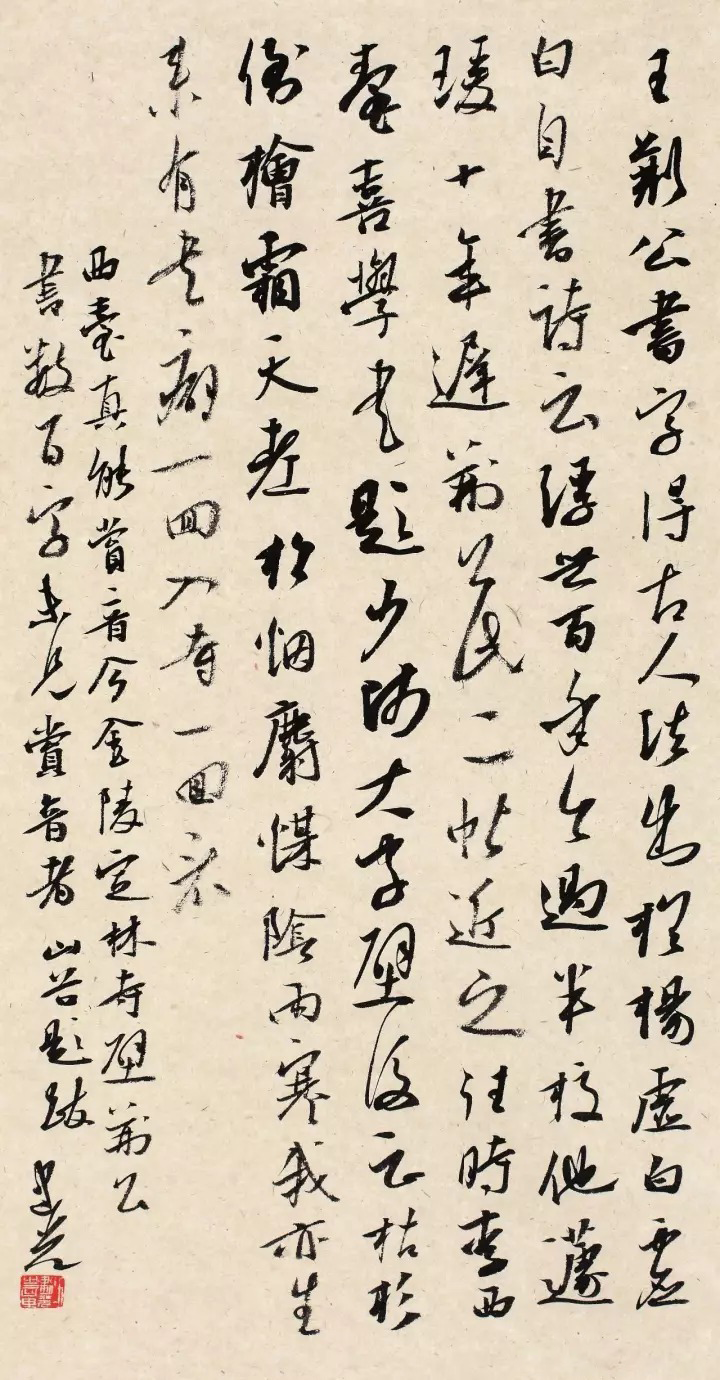 王荆公書字得古人法出於楊虚白虚
白自書詩云浮世百年今過半校他蘧
瑗十年遲荆公此二帖近之往時李西
臺喜學书題少师大字壁後云枯杉
倒檜霜天老松烟麝煤陰雨寒我亦生
来有书癖一回入寺一回看
西臺真能賞音今金陵定林寺壁荆公
書数百字未見賞音者山谷題跋